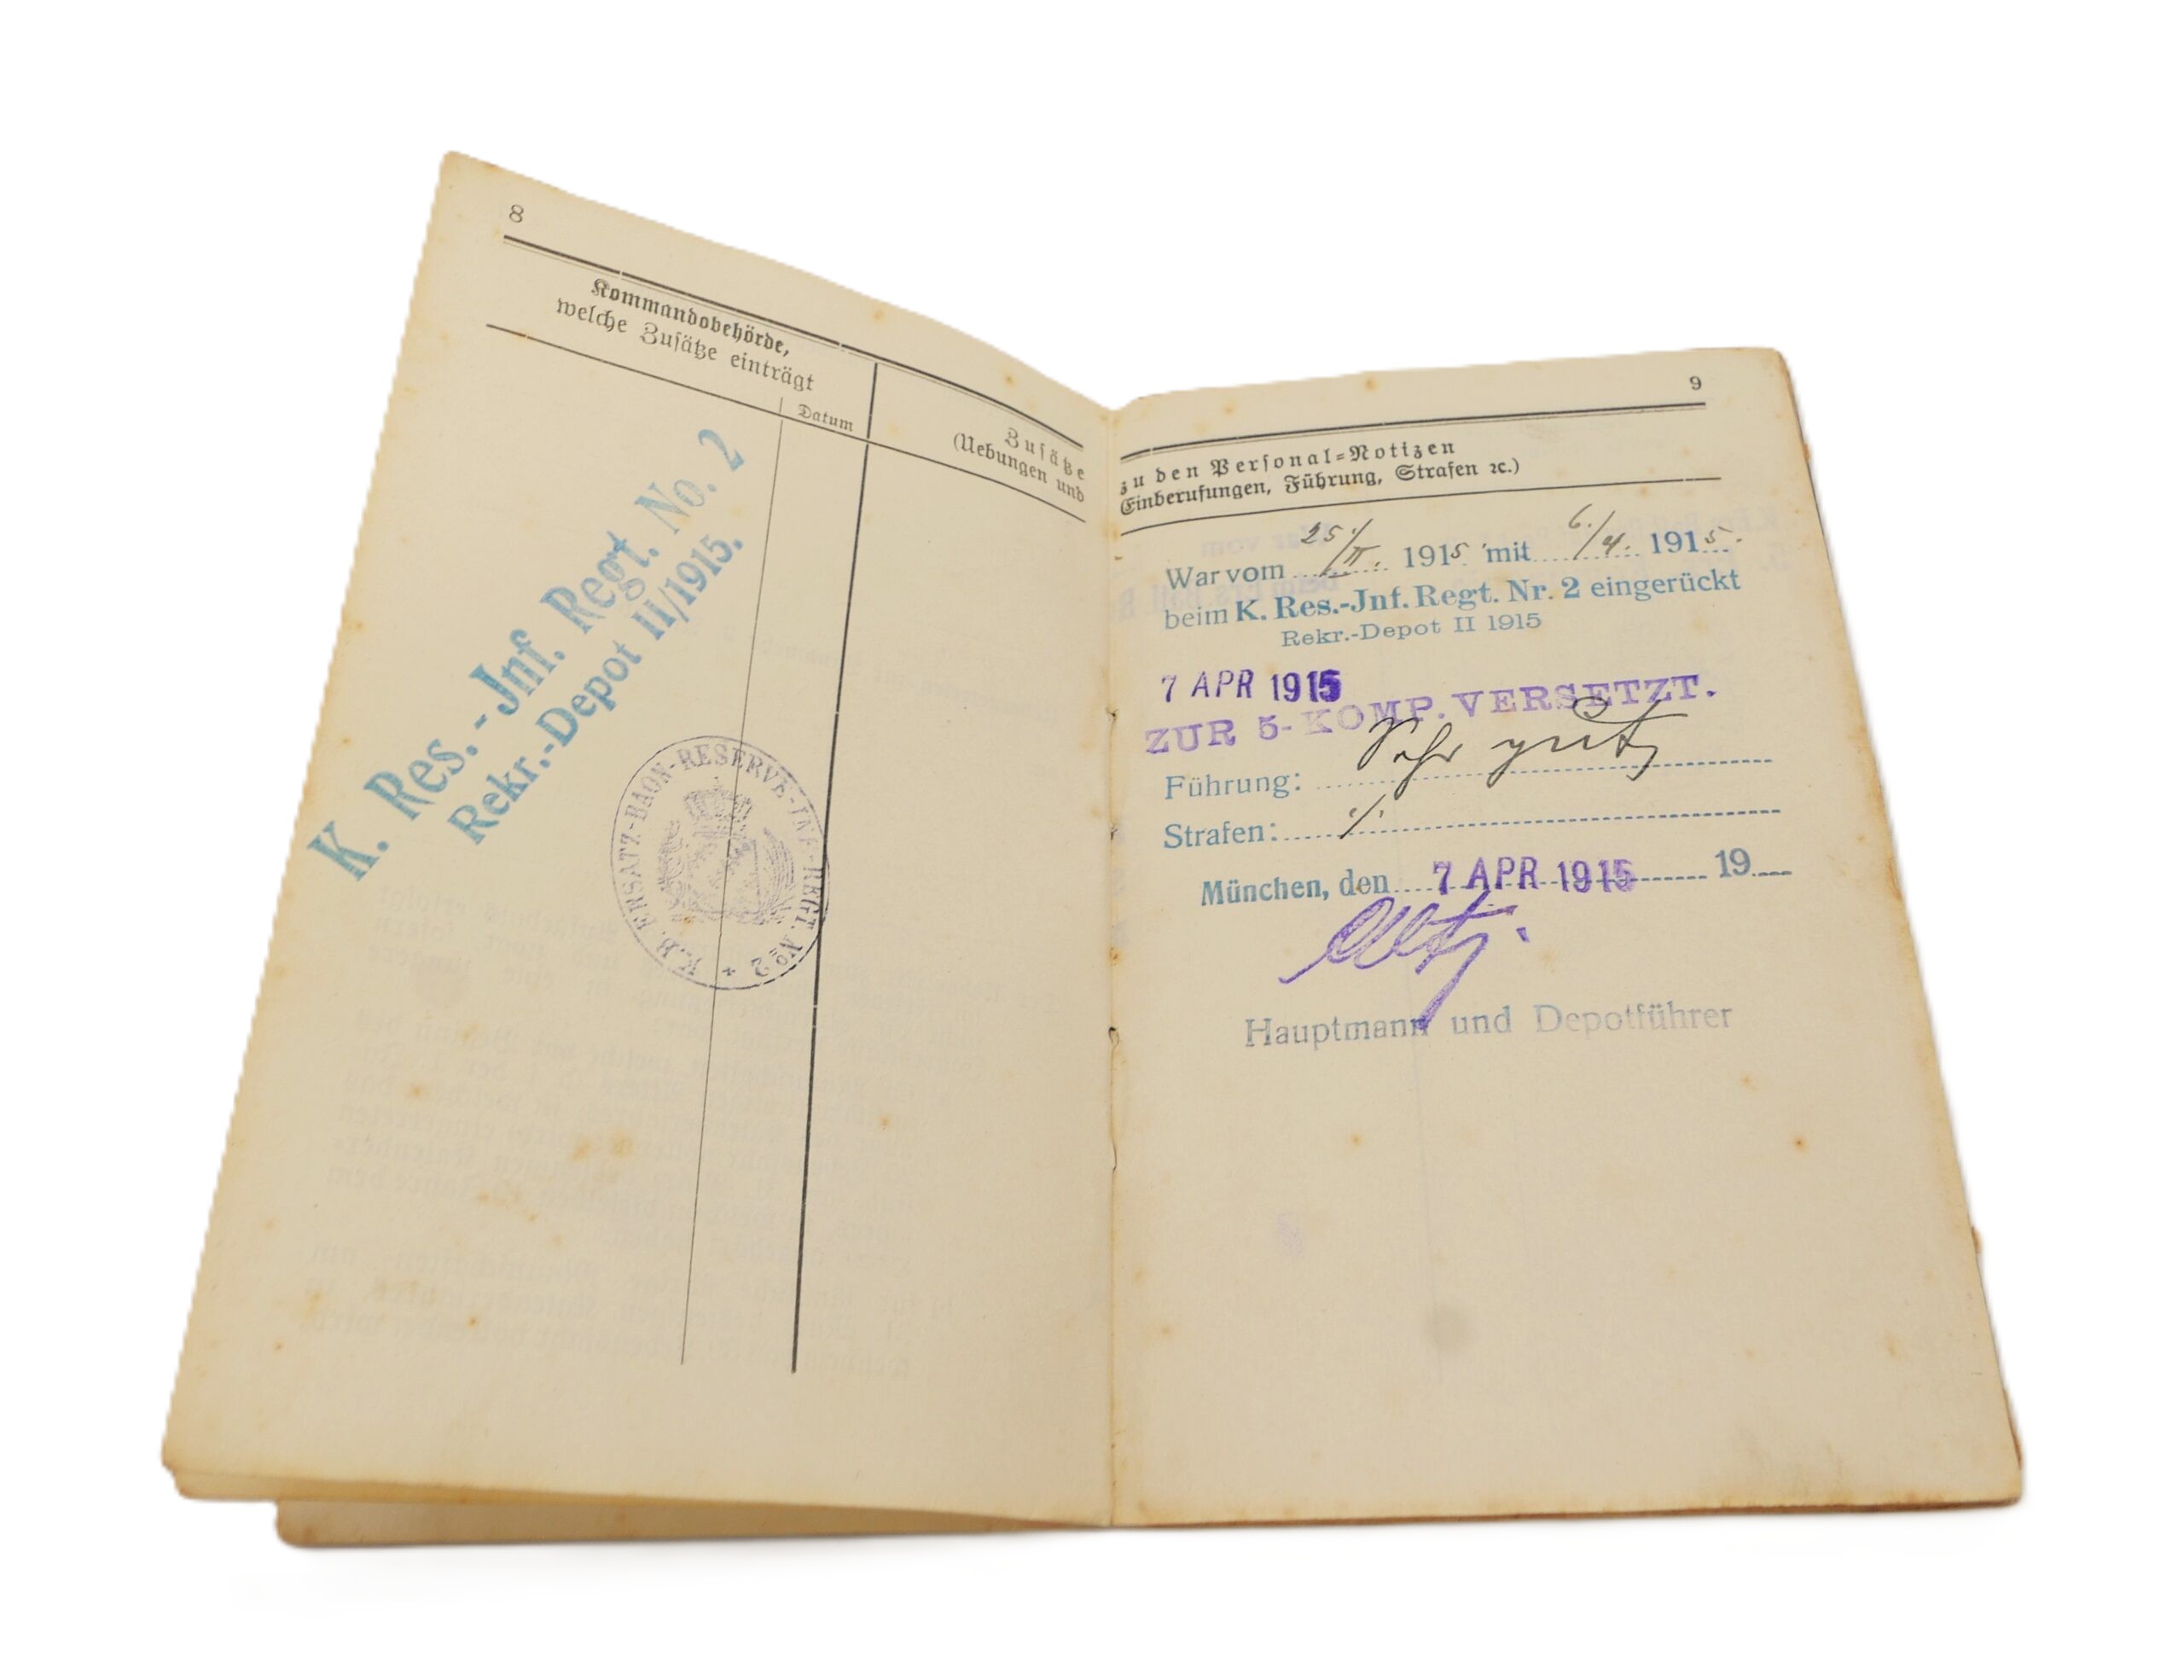 8
Kommandobehörde,
welche Zusätze einträgt
Datum
Zusätze
(Uebungen und
K. Res.-Jnf. Regt. No. 2
Rekr.-Depot II/1915.
K.B. ERSATZ-BAON-RESERVE-INF-REGT. No 2 *
9
zu den Personal-Notizen
Einberufungen, Führung, Strafen ꝛc.)
War vom 25./II. 1915 mit 6./4. 1915.
beim K. Res.-Jnf. Regt. Nr. 2 eingerückt
Rekr.-Depot II 1915
7 APR 1915
ZUR 5-KOMP. VERSETZT.
Führung: Sehr gut
Strafen: ./.
München, den 7 APR 1915 19
Hauptmann und Depotführer